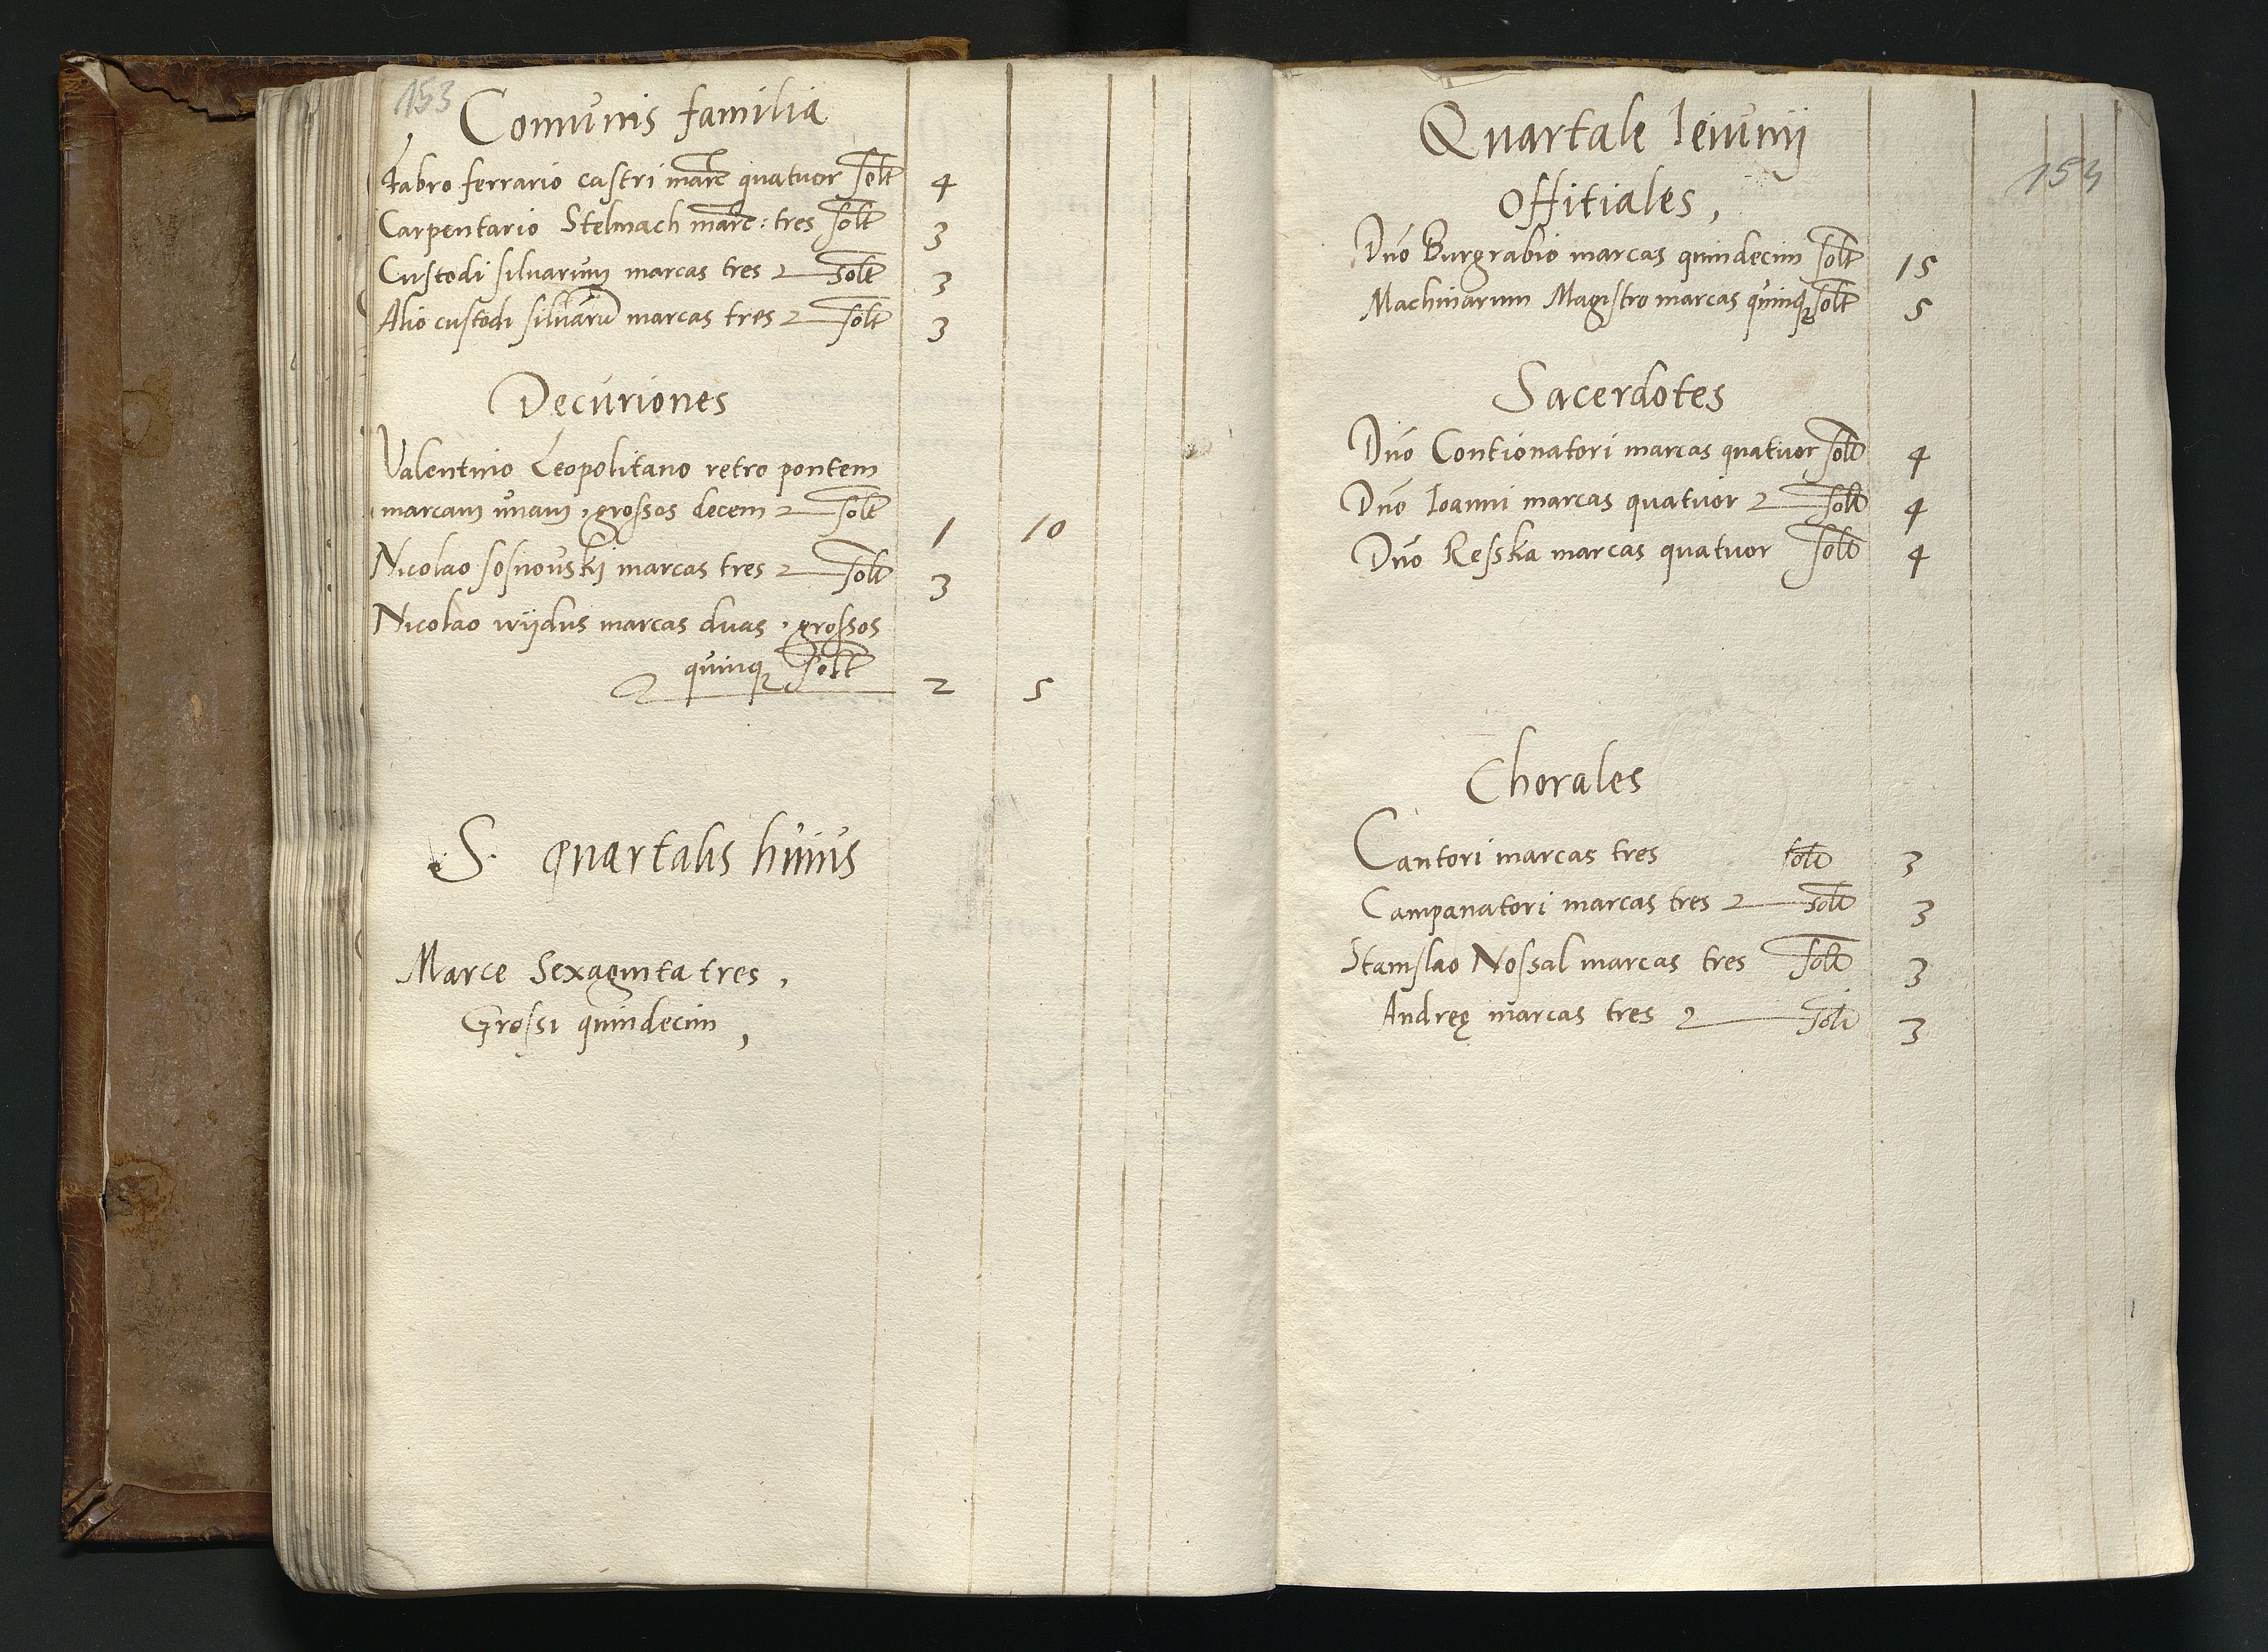 153
Comunis familia
Fabro ferrario castri marc quatuor solt 4
Carpentario Stelmach marc: tres solt 3
Custodi siluarum marcas tres solt 3
Alio custodi siluarū marcas tres solt 3
Decuriones
Valentino Leopolitano retro pontem
marcam unam, grossos decem solt 1 10
Nicolao sosnouskj marcas tres solt 3
Nicolao wijdus marcas duas, grossos
quinq solt 2 5
S. quartalis huius
Marce Sexaginta tres,
Grossi quindecim,
154
Quartale Ieiunij
Offitiales,
Dno Burgrabio marcas quindecim solt 15
Machinarum Magistro marcas quinq solt 5
Sacerdotes
Dno Contionatori marcas quatuor solt 4
Dno Ioanni marcas quatuor solt 4
Dno Resska marcas quatuor solt 4
Chorales
Cantori marcas tres solt 3
Campanatori marcas tres solt 3
Stanislao Nossal marcas tres solt 3
Andreę marcas tres solt 3